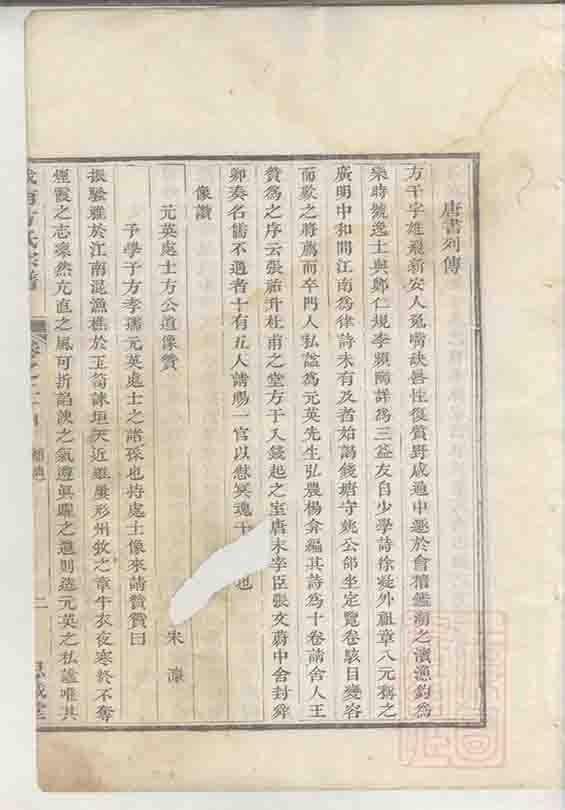 唐書列傳
方干字雄飛新安人兔嘴缺唇性復質野咸通中遯於會稽鑑湖之濱漁釣為
樂時號逸士與鄭仁規李頻陶詳為三益友自少學詩徐凝外祖章八元稱之
廣明中和間江南為律詩未有及者始謁錢塘守姚公郃坐定覽卷駭目變容
而歎之將薦而卒門人私諡為元英先生弘農楊弇編其詩為十卷請舍人王
贊為之序云張祜升杜甫之堂方干入錢起之室唐末宰臣張文蔚中舍封舜
卿奏名儒不遇者十有五人請賜一官以慰冥魂干 也
像讚
元英處士方公遺像贊
朱濂
予學子方孝孺元英處士之諸孫也持處士像來請贊贊曰
振騷雅於江南混漁樵於玉筍諫垣天近雖屢形州牧之章牛衣夜寒終不奪
煙霞之志凜然亢直之風可折諂諛之氣遵異躍之遺則造元英之私諡唯其
方氏宗譜
卷之
二
思成堂